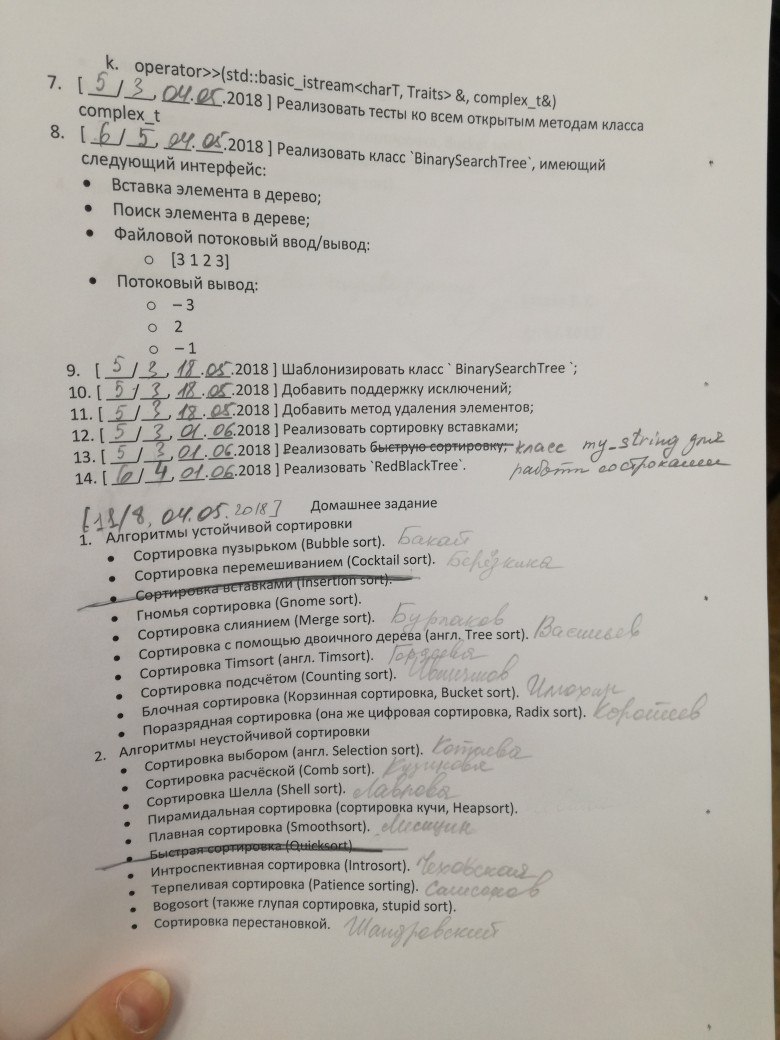 k. operator>>(std::basic_istream<charT, Traits> &, complex_t&)
7. [ 5 / 3, 04.05.2018 ] Реализовать тесты ко всем открытым методам класса
complex_t
8. [ 6 / 5, 04.05.2018 ] Реализовать класс `BinarySearchTree`, имеющий
следующий интерфейс:
• Вставка элемента в дерево;
• Поиск элемента в дереве;
• Файловой потоковый ввод/вывод:
○ [3 1 2 3]
• Потоковый вывод:
○ – 3
○ 2
○ – 1
9. [ 5 / 3, 18.05.2018 ] Шаблонизировать класс ` BinarySearchTree `;
10. [ 5 / 3, 18.05.2018 ] Добавить поддержку исключений;
11. [ 5 / 3, 18.05.2018 ] Добавить метод удаления элементов;
12. [ 5 / 3, 01.06.2018 ] Реализовать сортировку вставками;
13. [ 5 / 3, 01.06.2018 ] Реализовать быструю сортировку; класс my_string для
работы со строками
14. [ 6 / 4, 01.06.2018 ] Реализовать `RedBlackTree`.
[11/8, 04.05.2018] Домашнее задание
1. Алгоритмы устойчивой сортировки
• Сортировка пузырьком (Bubble sort). Бакай
• Сортировка перемешиванием (Cocktail sort). Берёзкина
• Сортировка вставками (Insertion sort).
• Гномья сортировка (Gnome sort).
• Сортировка слиянием (Merge sort). Бурлаков
• Сортировка с помощью двоичного дерева (англ. Tree sort). Васильев
• Сортировка Timsort (англ. Timsort). Гордеева
• Сортировка подсчётом (Counting sort).
• Блочная сортировка (Корзинная сортировка, Bucket sort).
• Поразрядная сортировка (она же цифровая сортировка, Radix sort). Коротеев
2. Алгоритмы неустойчивой сортировки
• Сортировка выбором (англ. Selection sort).
• Сортировка расчёской (Comb sort).
• Сортировка Шелла (Shell sort). Лаврова
• Пирамидальная сортировка (сортировка кучи, Heapsort).
• Плавная сортировка (Smoothsort). Лисицин
• Быстрая сортировка (Quicksort)
• Интроспективная сортировка (Introsort). Чеховская
• Терпеливая сортировка (Patience sorting).
• Bogosort (также глупая сортировка, stupid sort).
• Сортировка перестановкой. Шандровский